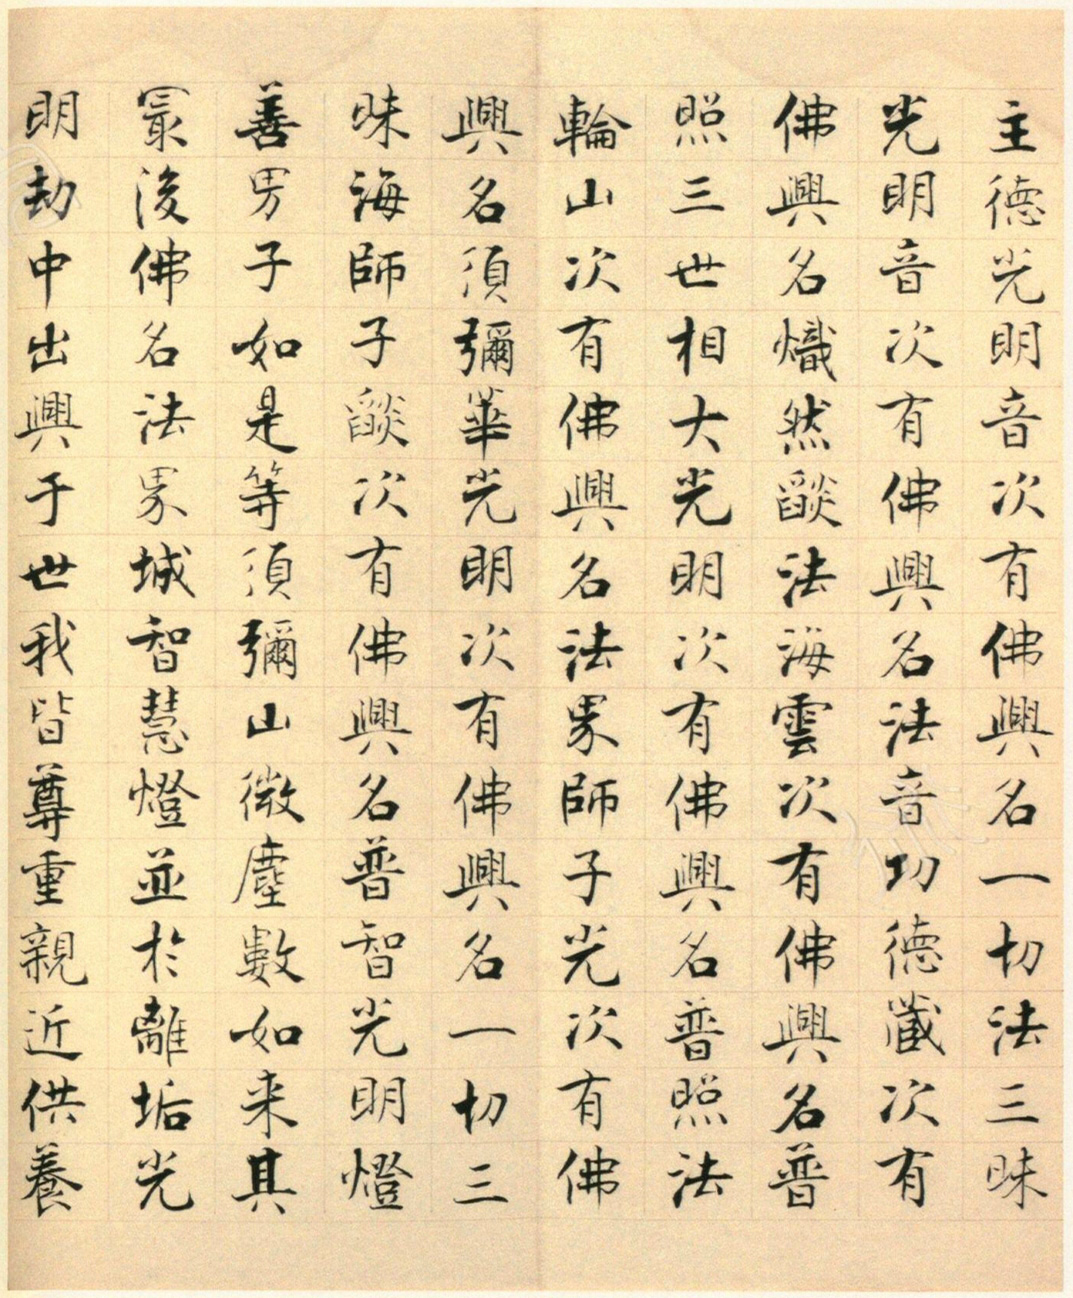 主德光明音次有佛興名一切法三昧
光明音次有佛興名法音功德藏次有
佛興名熾然燄法海雲次有佛興名普
照三世相大光明次有佛興名普照法
輪山次有佛興名法界師子光次有佛
興名須彌華光明次有佛興名一切三
昧海師子燄次有佛興名普智光明燈
善男子如是等須彌山微塵數如来其
冣後佛名法界城智慧燈並於離垢光
明劫中出興于世我皆尊重親近供養